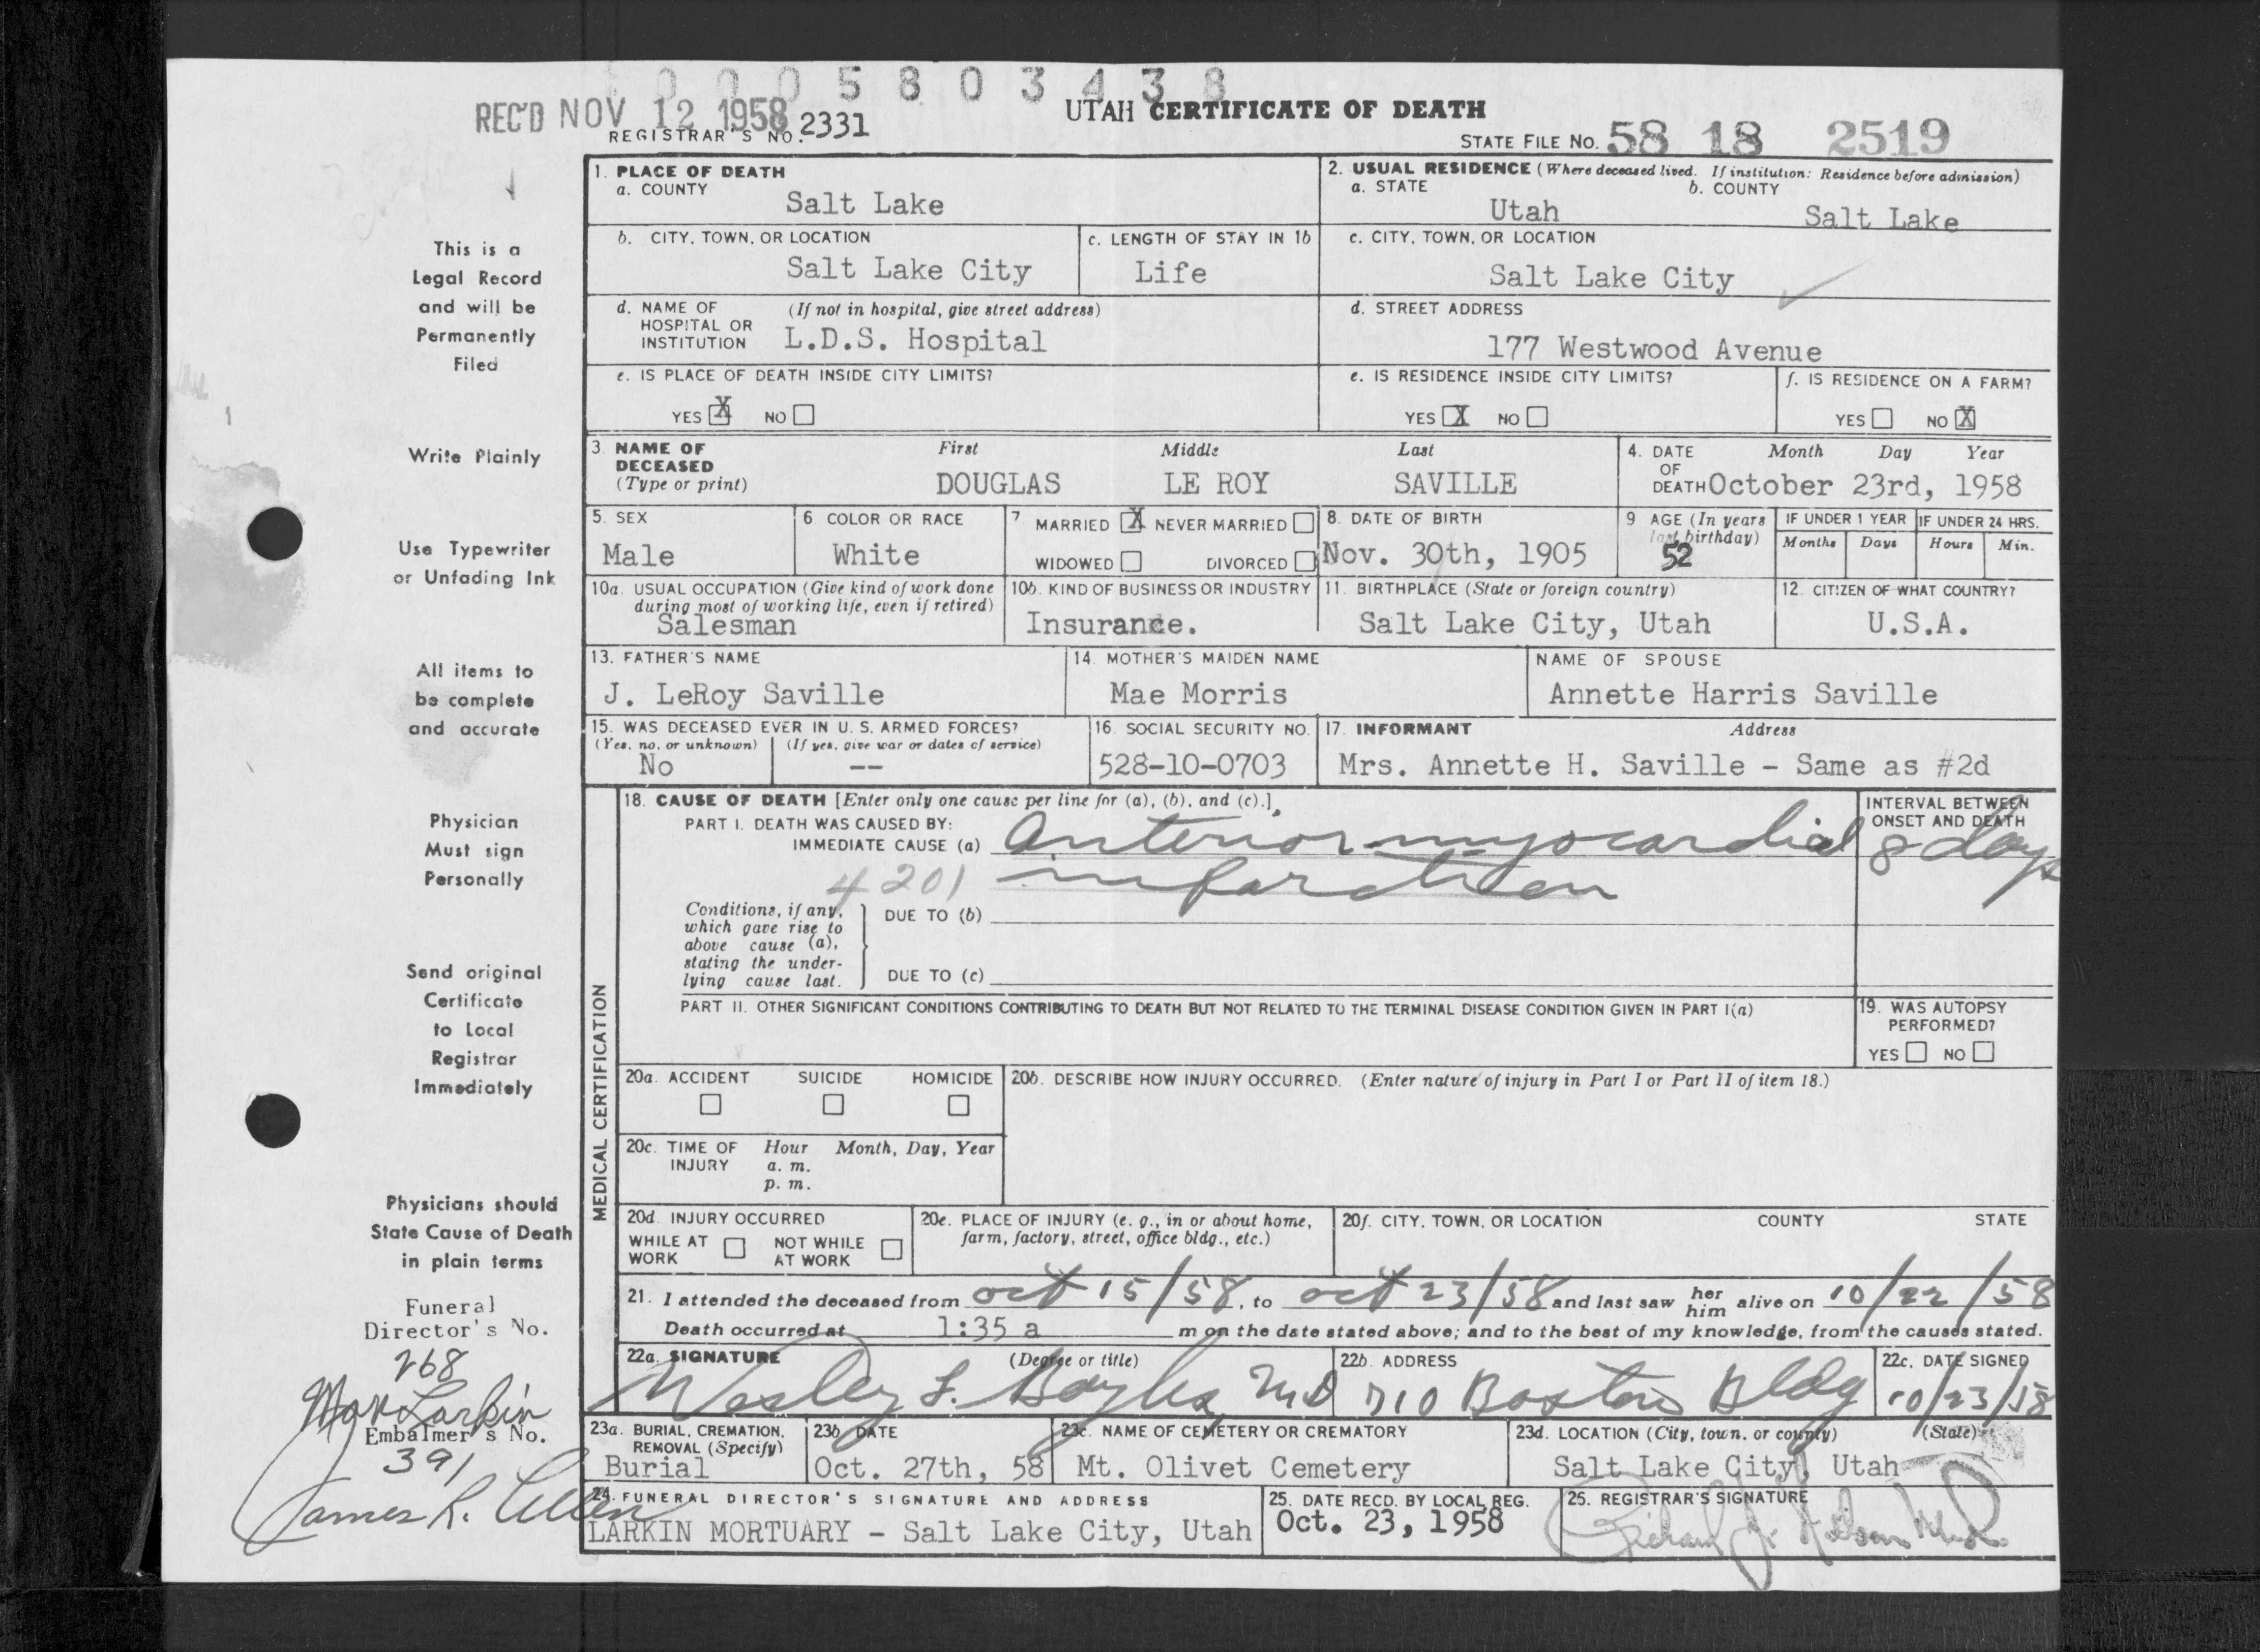 0 0 0 5 8 0 3 4 3 8
REC'D NOV 12 1958
REGISTRAR'S NO. 2331
UTAH CERTIFICATE OF DEATH
STATE FILE NO. 58 18 2519
This is a
Legal Record
and will be
Permanently
Filed
Write Plainly
Use Typewriter
or Unfading Ink
All items to
be complete
and accurate
Physician
Must sign
Personally
Send original
Certificate
to Local
Registrar
Immediately
Physicians should
State Cause of Death
in plain terms
Funeral
Director's No.
268
Max Larkin
Embalmer's No.
391
James R. Allen
1. PLACE OF DEATH
a. COUNTY
Salt Lake
2. USUAL RESIDENCE (Where deceased lived. If institution: Residence before admission)
a. STATE b. COUNTY
Utah Salt Lake
b. CITY, TOWN, OR LOCATION
Salt Lake City
c. LENGTH OF STAY IN 1b
Life
c. CITY, TOWN, OR LOCATION
Salt Lake City
d. NAME OF (If not in hospital, give street address)
HOSPITAL OR
INSTITUTION L.D.S. Hospital
d. STREET ADDRESS
177 Westwood Avenue
e. IS PLACE OF DEATH INSIDE CITY LIMITS?
YES X NO
e. IS RESIDENCE INSIDE CITY LIMITS?
YES X NO
f. IS RESIDENCE ON A FARM?
YES NO X
3. NAME OF First Middle Last
DECEASED
(Type or print) DOUGLAS LE ROY SAVILLE
4. DATE Month Day Year
OF
DEATH October 23rd, 1958
5. SEX
Male
6. COLOR OR RACE
White
7 MARRIED X NEVER MARRIED
WIDOWED DIVORCED
8. DATE OF BIRTH
Nov. 30th, 1905
9 AGE (In years
last birthday)
52
IF UNDER 1 YEAR
Months Days
IF UNDER 24 HRS.
Hours Min.
10a. USUAL OCCUPATION (Give kind of work done
during most of working life, even if retired)
Salesman
10b. KIND OF BUSINESS OR INDUSTRY
Insurance.
11. BIRTHPLACE (State or foreign country)
Salt Lake City, Utah
12. CITIZEN OF WHAT COUNTRY?
U.S.A.
13. FATHER'S NAME
J. LeRoy Saville
14. MOTHER'S MAIDEN NAME
Mae Morris
NAME OF SPOUSE
Annette Harris Saville
15. WAS DECEASED EVER IN U. S. ARMED FORCES?
(Yes, no, or unknown) (If yes, give war or dates of service)
No --
16. SOCIAL SECURITY NO.
528-10-0703
17. INFORMANT Address
Mrs. Annette H. Saville - Same as #2d
MEDICAL CERTIFICATION
18. CAUSE OF DEATH [Enter only one cause per line for (a), (b), and (c).]
PART I. DEATH WAS CAUSED BY:
IMMEDIATE CAUSE (a) Anterior myocardial
4201 infarction
INTERVAL BETWEEN
ONSET AND DEATH
8 days
Conditions, if any,
which gave rise to
above cause (a),
stating the under-
lying cause last.
DUE TO (b)
DUE TO (c)
PART II. OTHER SIGNIFICANT CONDITIONS CONTRIBUTING TO DEATH BUT NOT RELATED TO THE TERMINAL DISEASE CONDITION GIVEN IN PART I(a)
19. WAS AUTOPSY
PERFORMED?
YES NO
20a. ACCIDENT SUICIDE HOMICIDE
20b. DESCRIBE HOW INJURY OCCURRED. (Enter nature of injury in Part I or Part II of item 18.)
20c. TIME OF Hour Month, Day, Year
INJURY a. m.
p. m.
20d. INJURY OCCURRED
WHILE AT NOT WHILE
WORK AT WORK
20e. PLACE OF INJURY (e. g., in or about home,
farm, factory, street, office bldg., etc.)
20f. CITY, TOWN, OR LOCATION COUNTY STATE
21. I attended the deceased from Oct 15/58, to Oct 23/58 and last saw her him alive on 10/22/58
Death occurred at 1:35 a m on the date stated above; and to the best of my knowledge, from the causes stated.
22a. SIGNATURE (Degree or title)
Wesley S. Bayles MD
22b. ADDRESS
710 Boston Bldg
22c. DATE SIGNED
10/23/58
23a. BURIAL, CREMATION,
REMOVAL (Specify)
Burial
23b. DATE
Oct. 27th, 58
23c. NAME OF CEMETERY OR CREMATORY
Mt. Olivet Cemetery
23d. LOCATION (City, town, or county) (State)
Salt Lake City, Utah
24. FUNERAL DIRECTOR'S SIGNATURE AND ADDRESS
LARKIN MORTUARY - Salt Lake City, Utah
25. DATE RECD. BY LOCAL REG.
Oct. 23, 1958
25. REGISTRAR'S SIGNATURE
Richard J. Nelson